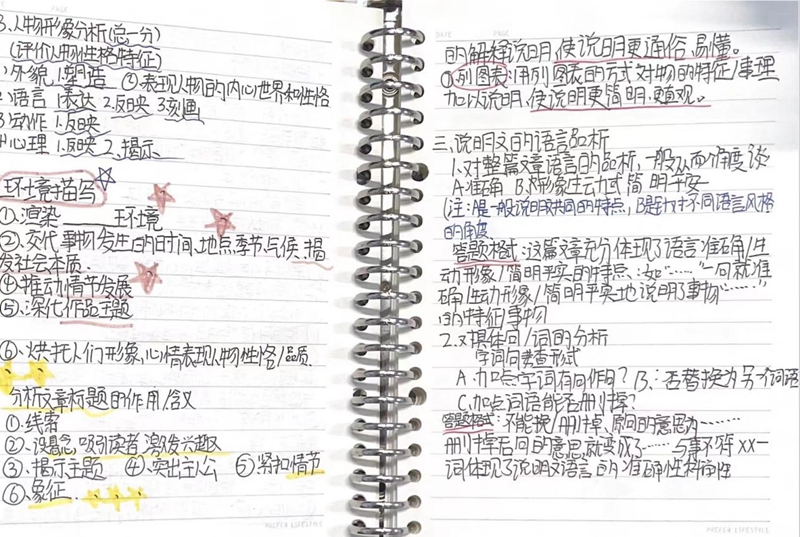 3.人物形象分析(总一分)
(评价人物性格特征)
1)外貌 1.塑造 ④表现人物的内心世界和性格
2)语言 1.表达 2.反映 3.刻画
3)动作 1.反映
4)心理 1.反映 2.揭示
环境描写
①.渲染____环境
②.交代事物发生的时间、地点季节气候、揭
发社会本质.
④.推动情节发展
⑤.深化作品主题
⑥、烘托人们形象,心情表现人物性格/品质.
分析文章标题的作用/含义
①.线索
②、设悬念,吸引读者,激发兴趣
③、揭示主题 ④、突出主人公 ⑤紧扣情节
⑥、象征
DATE PAGE
的解释说明,使说明更通俗、易懂。
列图表:用列图表的方式对物的特征/事理
加以说明,使说明更简明、更直观。
三、说明文的语言品析
1.对整篇文章语言的品析,一般从两个角度谈
A.准确 B.形象生动或简明平实
(注:A是一般说明文共同的特点,B是针对不同语言风格
的角度
答题格式:这篇文章充分体现了语言准确/生
动形象/简明平实的特点:如“……”一句就准
确/生动形象/简明平实地说明了事物“……”
的特征/事物
2.对具体句/词的分析
字词句考查形式
A.加点字词有何作用?B.能否替换为另一个词语
C.加点词语能否删掉?
答题格式:不能换/删掉、原句的意思为……
删掉后句的意思,就变成了……与事不符xx一
词体现了说明文语言的准确性
PREFER LIFESTYLE
PREFER LIFESTYLE